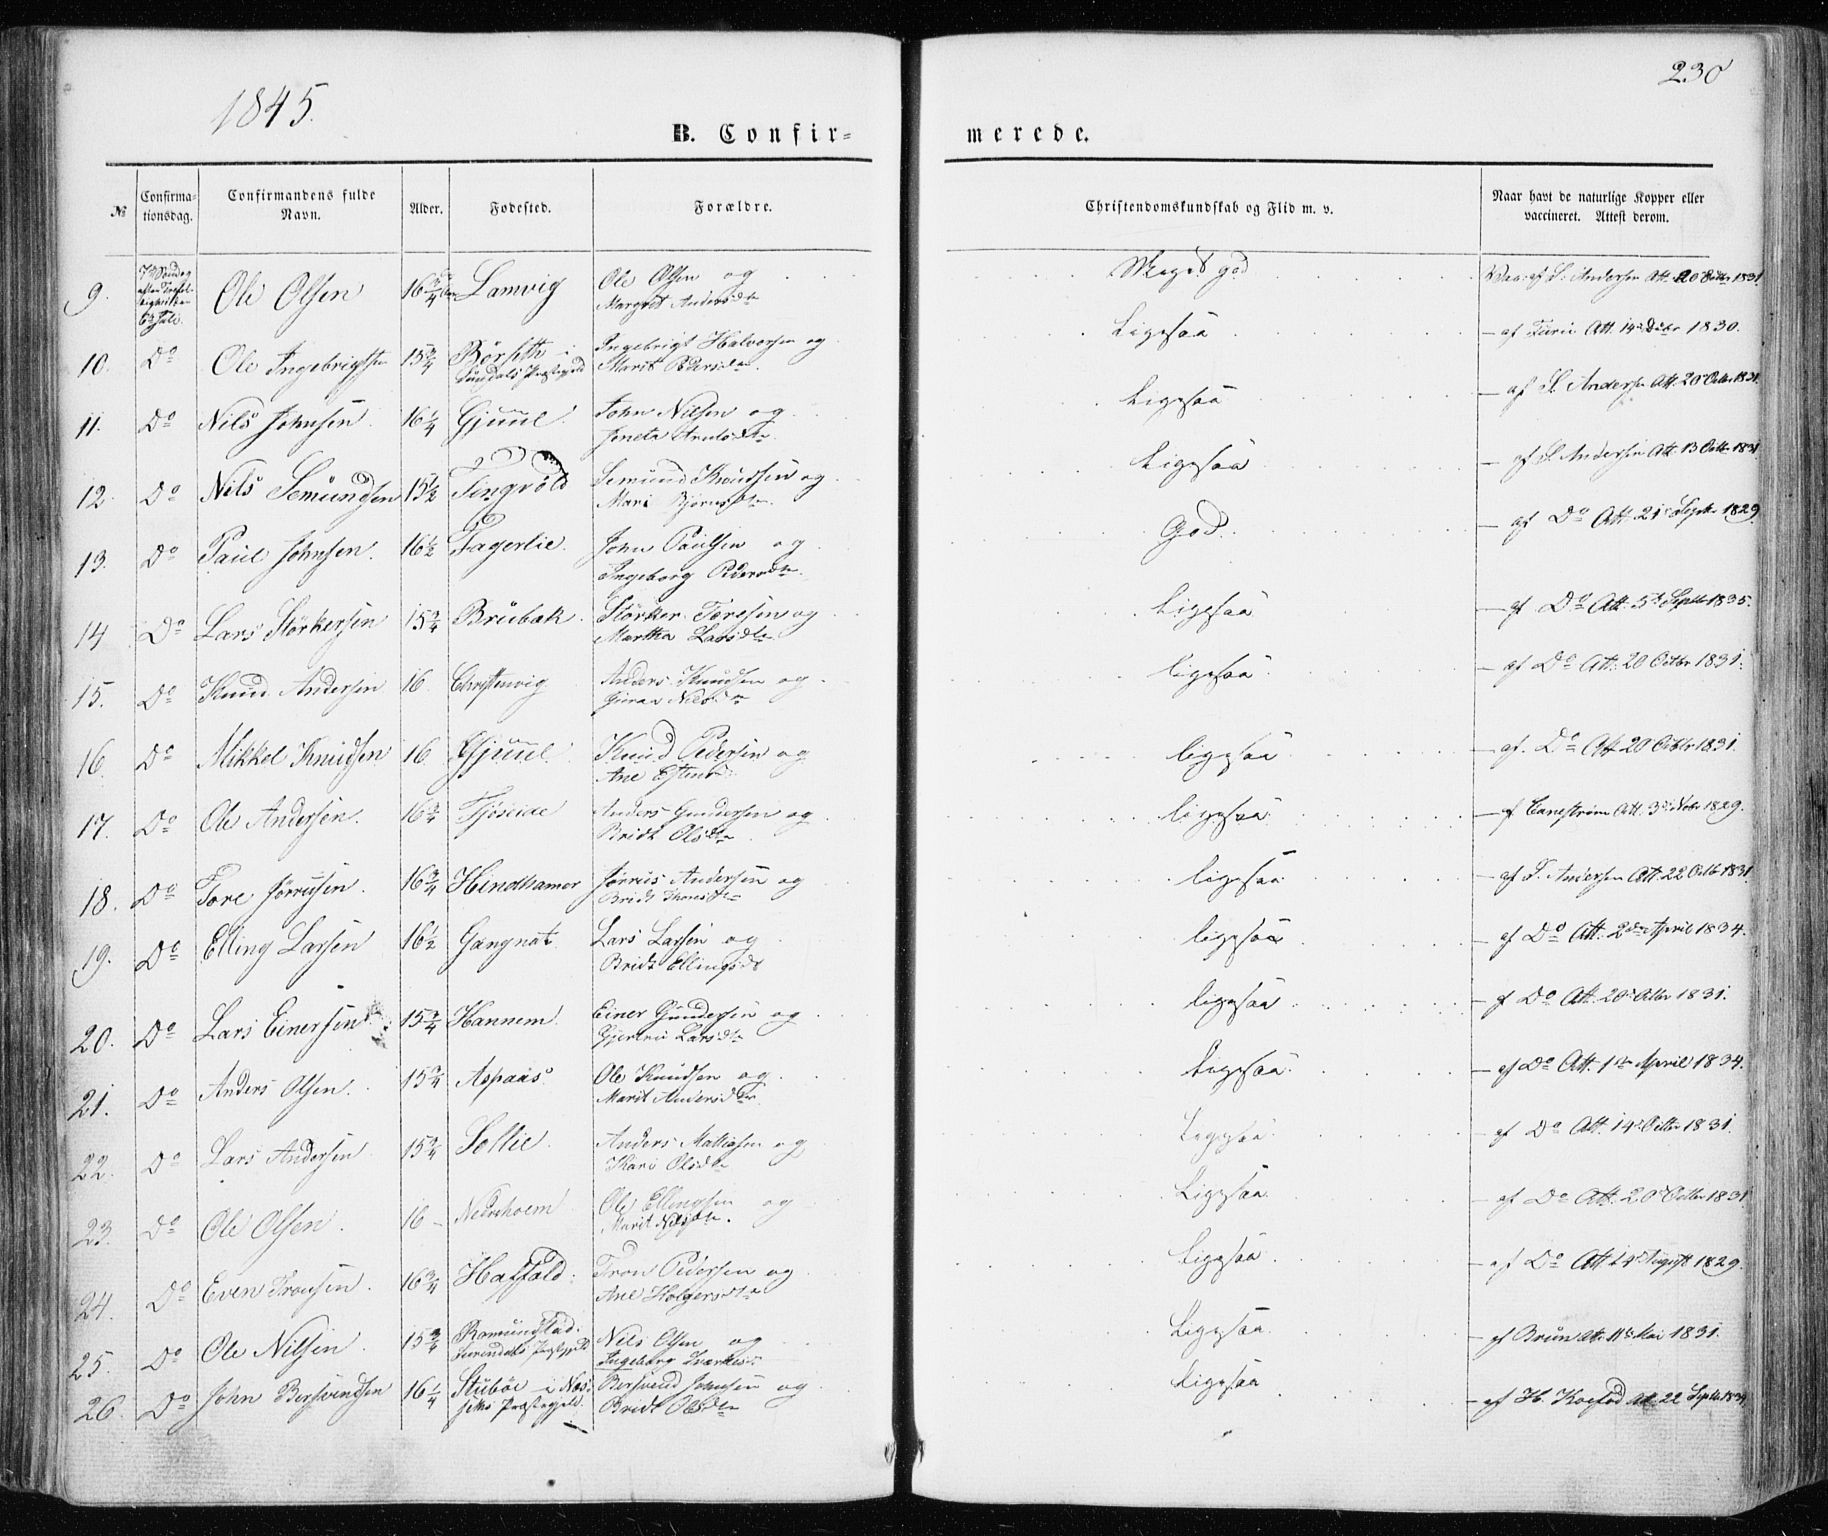 1845.
230
B. Confir-
merede.
№
Confirma-
tionsdag.
Confirmandens fulde
Navn.
Alder.
Fødested.
Forældre.
Christendomskundskab og Flid m. v.
Naar havt de naturlige Kopper eller
vaccineret. Attest derom.
9. 7de Søndag Ole Olsen 16 3/4 Lamvig Ole Olsen og Meget god Vac: af S. Andersen Att. 20 Octbr 1831
efter
6te Juli. Margret Andersdtr
10. Do Ole Ingebrigtsen 15 3/4 Børseth i Ingebrigt Halvorsen og Ligesaa — af Att. 14de 1830.
Sundals Præstegjeld Marit Pedersdtr
11. Do Nils Johnsen 16 1/4 Gjuul John Nilsen og Ligesaa — af S. Andersen Att. 20de Octbr 1831.
12. Do Nils Semundsen 15 1/2 Tingvold Semund Knudsen og Ligesaa — af S. Andersen Att. 13 Octbr 1831
Mari Bjørnsdtr
13. Do Paul Johnsen 16 1/2 Fagerlie John Paulsen og God — af Do Att. 21de Septbr 1829
Ingeborg Pedersdtr
14 Do Lars Størkersen 15 3/4 Brubæk Størker Toresen og Ligesaa — af Do Att. 5te Septbr 1835.
Martha Larsdtr
15. Do Knud Andersen 16 Christenvig Anders Knudsen og ligesaa — af Do Att. 20 Octbr 1831.
Guran Nilsdtr
16. Do Mikkel Knudsen 16 Gjuul Knud Pedersen og ligesaa — af Do Att. 20 Octbr 1831.
Ane
17. Do Ole Andersen 16 3/4 Anders Gundersen og ligesaa — af Att. 3die Novbr 1829.
Bridt Olsdtr
18. Do Tore 16 3/4 Hindhamer Andersen og ligesaa — af S. Andersen Att. 22 Octbr 1831.
Bridt
19. Do Elling Larsen 16 1/2 Gangnat Lars Larsen og ligesaa — af Do Att. 2den April 1834.
Bridt Ellingsdtr
20. Do Lars Einersen 15 3/4 Hannem Einer Gundersen og ligesaa — af Do Att. 20de Octbr 1831.
Gjertru Larsdtr
21. Do Anders Olsen 15 3/4 Aspaas Ole Knudsen og Ligesaa — af Do Att. 1ste April 1834.
Marit Andersdtr
22. Do Lars Andersen 15 3/4 Sollie Anders og Ligesaa — af Do Att. 14de Octbr 1831.
Kari Olsdtr
23. Do Ole Olsen 16 — Ole Ellingsen og Ligesaa — af Do Att. 20de Octbr 1831
Marit Nilsdtr
24. Do Even Tronsen 16 3/4 Haffald Tron Pedersen og Ligesaa — af Do Att. August 1829.
Ane Holgersdtr
25. Do Ole Nilsen 15 3/4 Romundstad Nils Olsen og Ligesaa — af Brun Att. 11te Mai 1831.
Surendals Præstegjeld Ingeborg
26. Do John Bersvendsen 16 1/4 Stuböe i Næs- Bersvend Johnsen og Ligesaa — af H. Koefod Att. 22 Septbr
sets Præstegjeld. Bridt Olsdtr